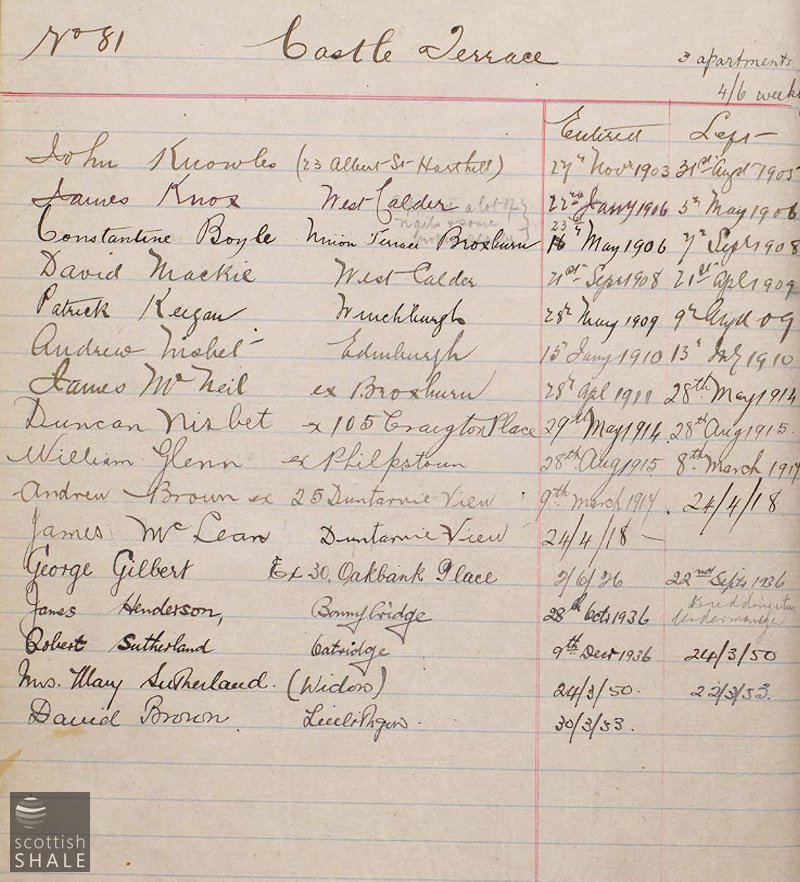 No 81 Castle Terrace 3 apartments
4/6 weekly
Entered Left
John Knowles (23 Albert St Harthill) 27th Novr 1903 31st Augst 1905
James Knox West Calder 22nd Jany 1906 5th May 1906
a lot of
nails & some
Constantine Boyle Union Terrace Broxburn 23rd May 1906 7th Sept 1908
David Mackie West Calder 21st Sept 1908 21st Apl 1909
Patrick Keegan Winchburgh 28th May 1909 9th Augt 09
Andrew Nisbet Edinburgh 15th Jany 1910 13th 1910
James McNeil ex Broxburn 28th Apl 1911 28th May 1914
Duncan Nisbet ex 105 Craigton Place 29th May 1914 28th Aug 1915
William Glenn ex Philpstoun 28th Aug 1915 8th March 1917
Andrew Brown ex 25 Duntarvie View 9th March 1917 24/4/18
James McLean Duntarvie View 24/4/18 –
George Gilbert Ex 30, Oakbank Place 2/6/26 22nd Sept 1936
James Henderson, Bonnybridge 28th Oct 1936 Undermanager
Robert Sutherland Oatridge 9th Decr 1936 24/3/50
Mrs. Mary Sutherland. (Widow) 24/3/50. 22/3/53.
David Brown 30/3/53.
scottish
SHALE